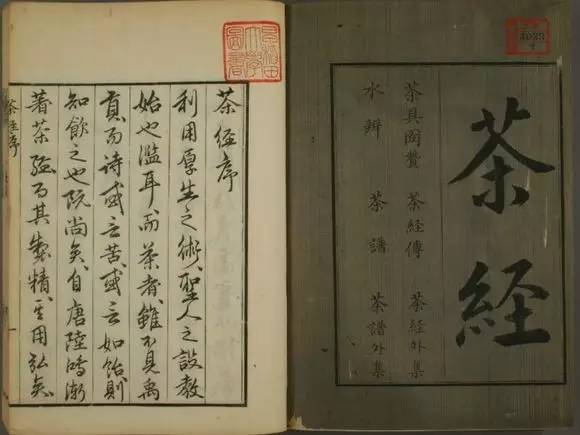 茶経
茶具圖賛 茶経傳 茶経外集
水辨 茶譜 茶譜外集
早稲田大學圖書
茶経序
利用厚生之術、聖人之設教
始也濫耳、而茶者、雖不見禹
貢而詩或云苦、或云如飴則
知飲之也 尚矣、自唐陸鴻漸
著茶經而其製精、其用弘矣、
茶経序
一